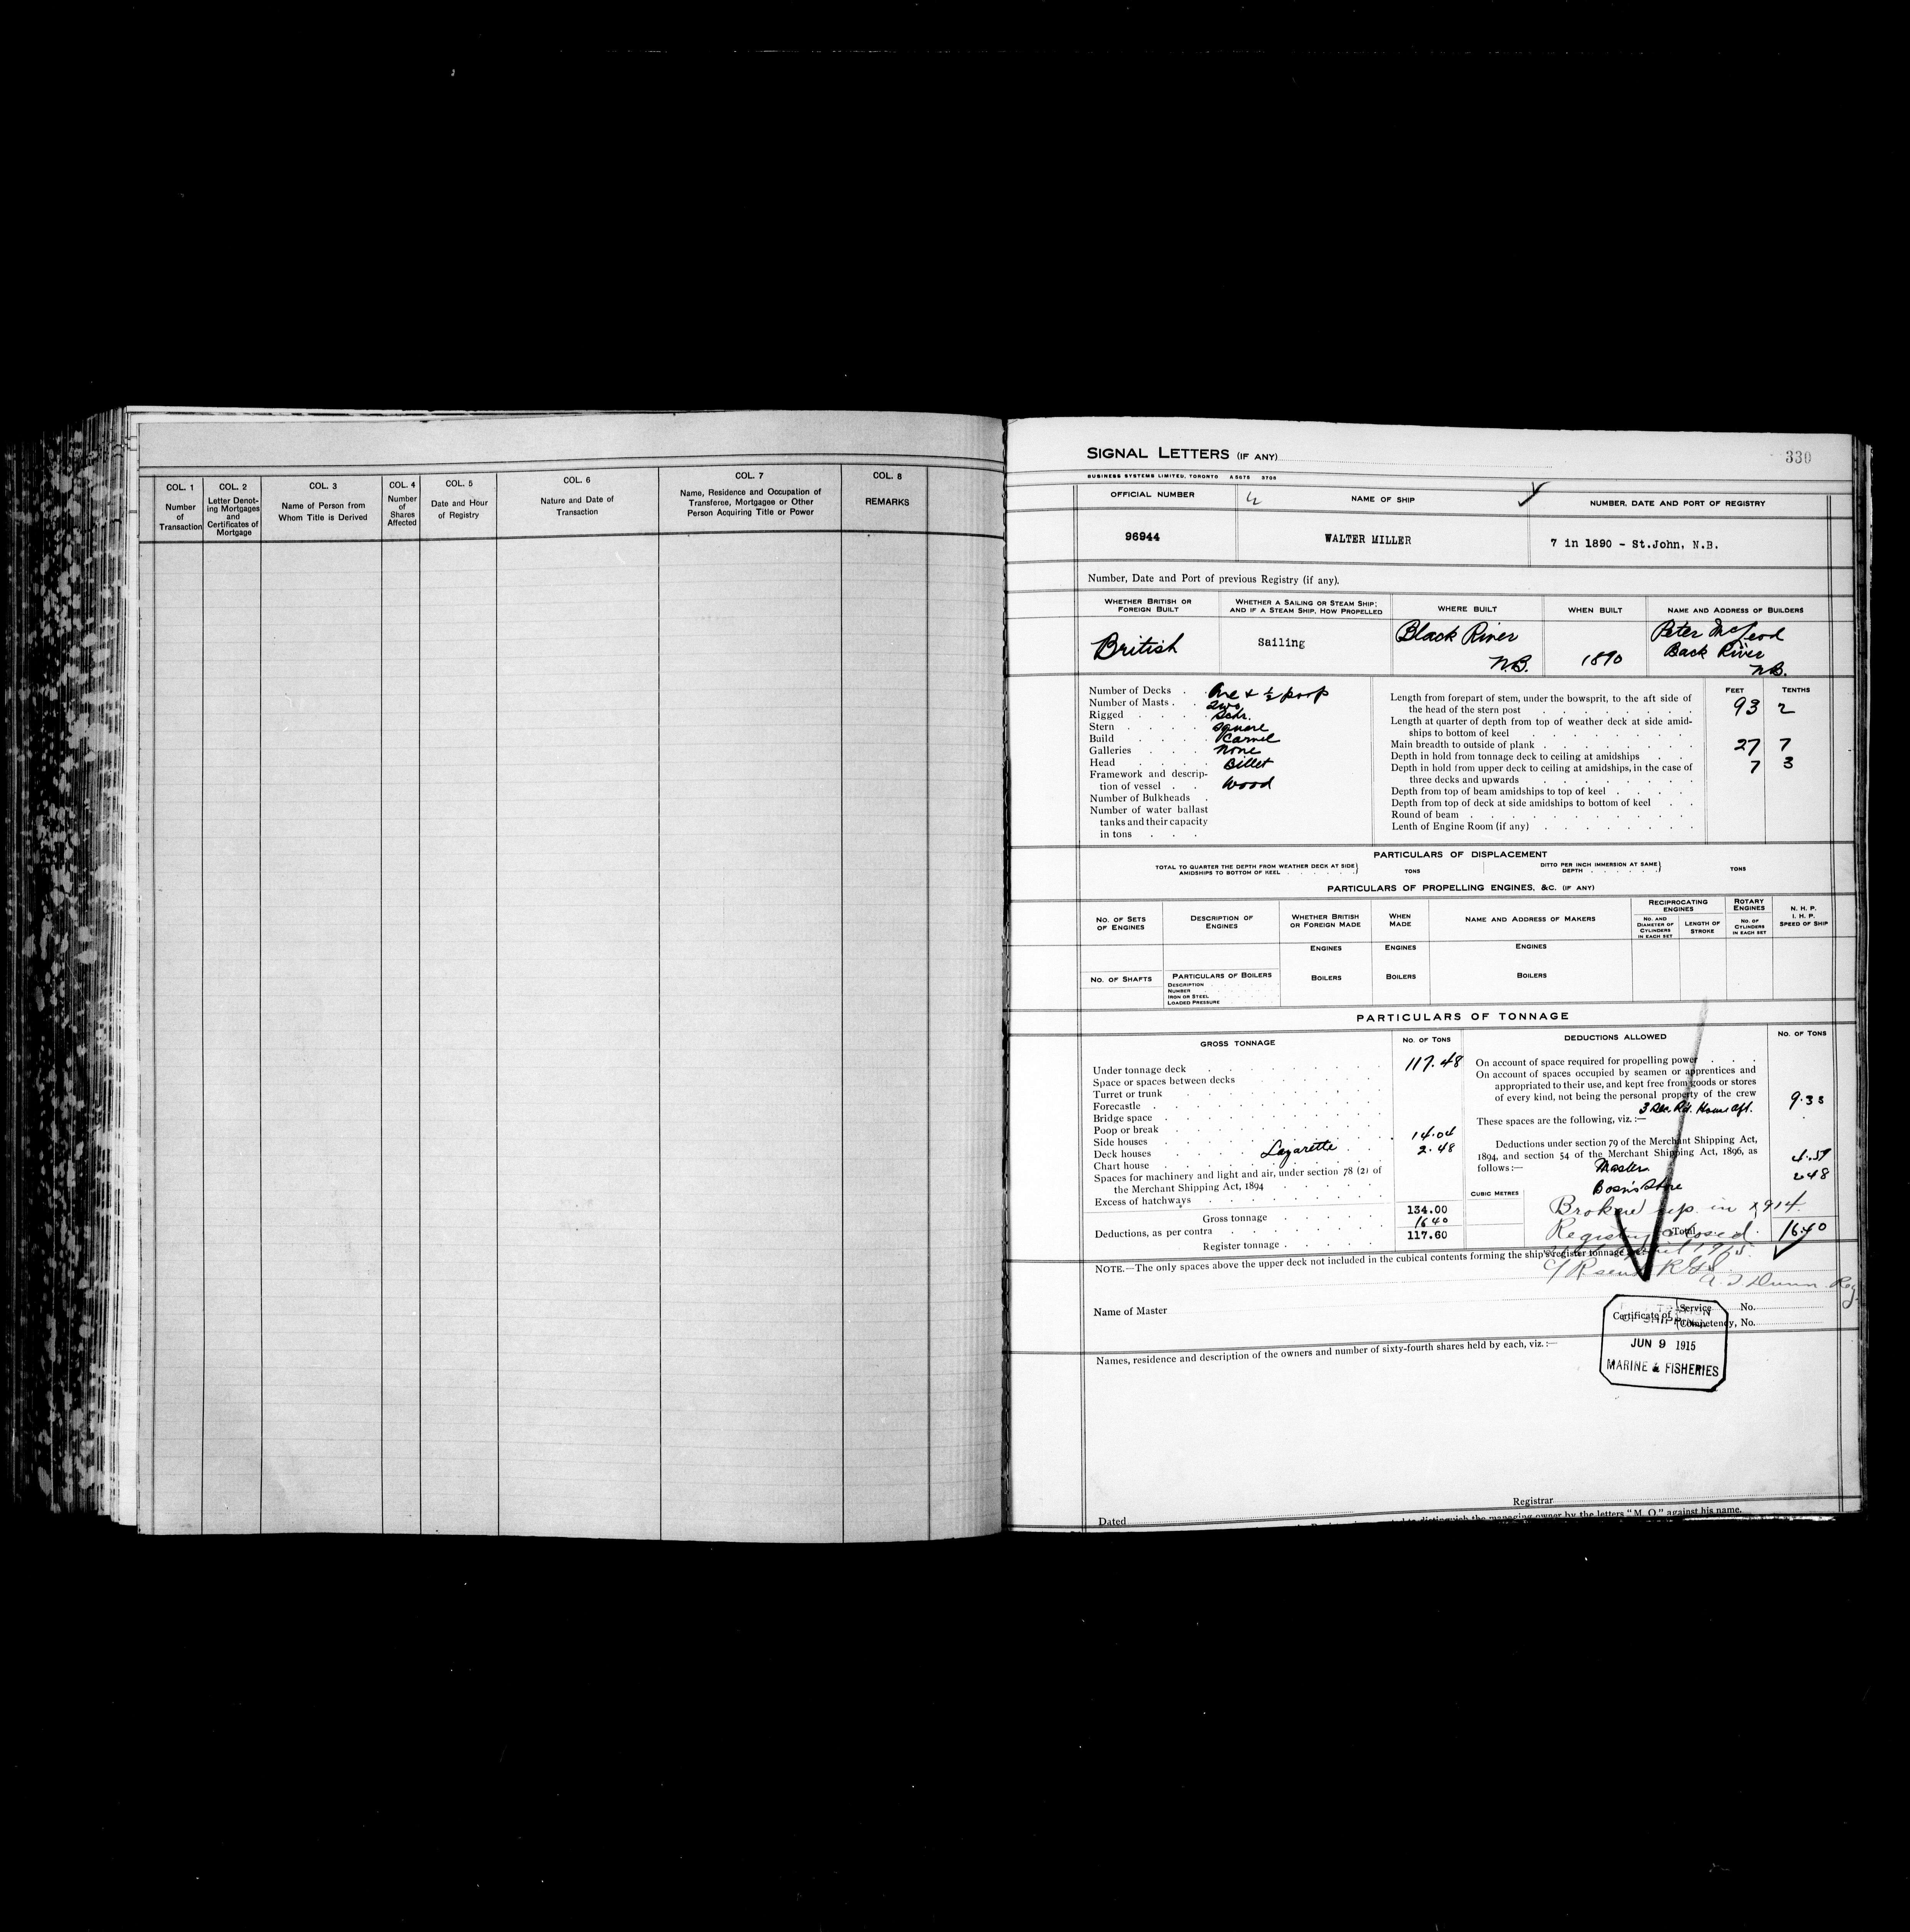 COL. 1
Number
of
Transaction
COL. 2
Letter Denot-
ing Mortgages
and
Certificates of
Mortgage
COL. 3
Name of Person from
Whom Title is Derived
COL. 4
Number
of
Shares
Affected
COL. 5
Date and Hour
of Registry
COL. 6
Nature and Date of
Transaction
COL. 7
Name, Residence and Occupation of
Transferee, Mortgagee or Other
Person Acquiring Title or Power
COL. 8
REMARKS
SIGNAL LETTERS (IF ANY)
330
BUSINESS SYSTEMS LIMITED, TORONTO
OFFICIAL NUMBER
NAME OF SHIP
NUMBER, DATE AND PORT OF REGISTRY
96944
WALTER MILLER
7 in 1890 - St.John, N.B.
Number, Date and Port of previous Registry (if any).
WHETHER BRITISH OR
FOREIGN BUILT
WHETHER A SAILING OR STEAM SHIP;
AND IF A STEAM SHIP, HOW PROPELLED
WHERE BUILT
WHEN BUILT
NAME AND ADDRESS OF BUILDERS
British
Sailing
Black River
N.B.
1890
Peter McLeod
Back River
N.B.
Number of Decks . One + ½ poop
Number of Masts . . Two
Rigged . . . . Schr.
Stern . . . . square
Build . . . . Carvel
Galleries . . . none
Head . . . . Billet
Framework and descrip-
tion of vessel . . Wood
Number of Bulkheads .
Number of water ballast
tanks and their capacity
in tons . . .
FEET TENTHS
Length from forepart of stem, under the bowsprit, to the aft side of
the head of the stern post 93 2
Length at quarter of depth from top of weather deck at side amid-
ships to bottom of keel
Main breadth to outside of plank 27 7
Depth in hold from tonnage deck to ceiling at amidships 7 3
Depth in hold from upper deck to ceiling at amidships, in the case of
three decks and upwards
Depth from top of beam amidships to top of keel
Depth from top of deck at side amidships to bottom of keel
Round of beam
Lenth of Engine Room (if any)
PARTICULARS OF DISPLACEMENT
TOTAL TO QUARTER THE DEPTH FROM WEATHER DECK AT SIDE
AMIDSHIPS TO BOTTOM OF KEEL
TONS
DITTO PER INCH IMMERSION AT SAME
DEPTH
TONS
PARTICULARS OF PROPELLING ENGINES, &C. (IF ANY)
NO. OF SETS
OF ENGINES
DESCRIPTION OF
ENGINES
WHETHER BRITISH
OR FOREIGN MADE
WHEN
MADE
NAME AND ADDRESS OF MAKERS
RECIPROCATING
ENGINES
NO. AND
DIAMETER OF
CYLINDERS
IN EACH SET
LENGTH OF
STROKE
ROTARY
ENGINES
NO. OF
CYLINDERS
IN EACH SET
N. H. P.
I. H. P.
SPEED OF SHIP
ENGINES
ENGINES
ENGINES
NO. OF SHAFTS
PARTICULARS OF BOILERS
DESCRIPTION
NUMBER
IRON OR STEEL
LOADED PRESSURE
BOILERS
BOILERS
BOILERS
PARTICULARS OF TONNAGE
GROSS TONNAGE
NO. OF TONS
Under tonnage deck 117.48
Space or spaces between decks
Turret or trunk
Forecastle
Bridge space
Poop or break 14.04
Side houses
Deck houses Lazarette 2.48
Chart house
Spaces for machinery and light and air, under section 78 (2) of
the Merchant Shipping Act, 1894
Excess of hatchways
Gross tonnage 134.00
Deductions, as per contra 16.40
Register tonnage 117.60
DEDUCTIONS ALLOWED
NO. OF TONS
On account of space required for propelling power
On account of spaces occupied by seamen or apprentices and
appropriated to their use, and kept free from goods or stores
of every kind, not being the personal property of the crew 9.33
These spaces are the following, viz.:— 3 Sea. Rd. House aft.
Deductions under section 79 of the Merchant Shipping Act,
1894, and section 54 of the Merchant Shipping Act, 1896, as
follows:— Master 4.59
Bosn's Store 2.48
CUBIC METRES
Broken up in 1914.
Registry closed
Total 16.40
NOTE.—The only spaces above the upper deck not included in the cubical contents forming the ship's register tonnage
Name of Master
Certificate of Service No.
Competency, No.
JUN 9 1915
MARINE & FISHERIES
Names, residence and description of the owners and number of sixty-fourth shares held by each, viz.:—
Registrar
Dated
the managing owner by the letters "M. O." against his name.